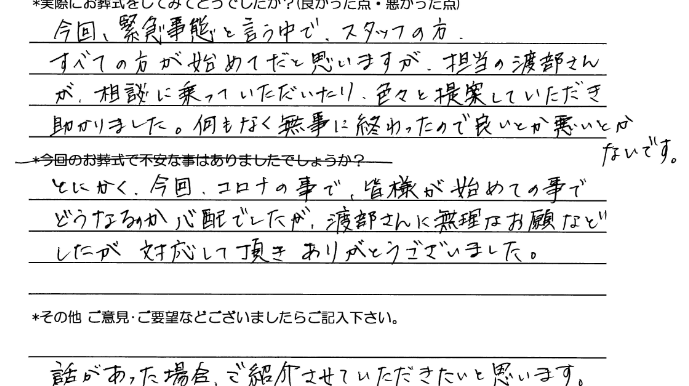 *実際にお葬式をしてみてどうでしたか？(良かった点・悪かった点)
今回、緊急事態と言う中で、スタッフの方、
すべての方が始めてだと思いますが、担当の渡部さん
が、相談に乗っていただいたり、色々と提案していただき
助かりました。何もなく無事に終わったので良いとか悪いとか
ないです。
*今回のお葬式で不安な事はありましたでしょうか？
とにかく、今回、コロナの事で、皆様が始めての事で
どうなるのか心配でしたが、渡部さんに無理なお願など
したが 対応して頂き ありがとうございました。
*その他 ご意見・ご要望などございましたらご記入下さい。
話があった場合、ご紹介させていただきたいと思います。